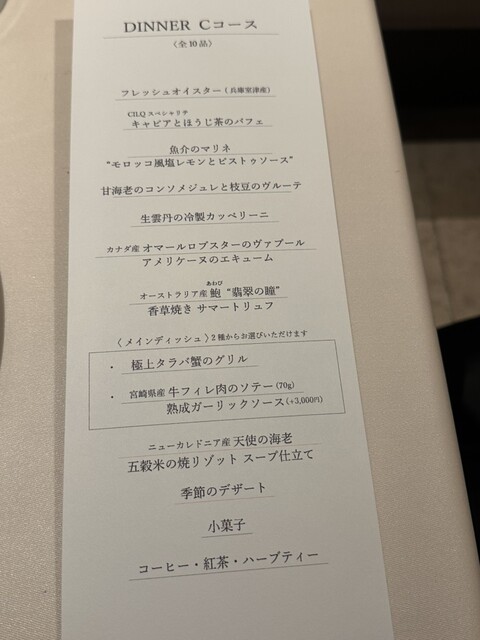 DINNER Cコース
〈全10品〉
フレッシュオイスター（兵庫室津産）
CILQ スペシャリテ
キャビアとほうじ茶のパフェ
魚介のマリネ
“モロッコ風塩レモンとピストゥソース”
甘海老のコンソメジュレと枝豆のヴルーテ
生雲丹の冷製カッペリーニ
カナダ産 オマールロブスターのヴァプール
アメリケーヌのエキューム
あわび
オーストラリア産 鮑 “翡翠の瞳”
香草焼き サマートリュフ
〈メインディッシュ〉2種からお選びいただけます
・ 極上タラバ蟹のグリル
・ 宮崎県産 牛フィレ肉のソテー(70g)
熟成ガーリックソース(+3,000円)
ニューカレドニア産 天使の海老
五穀米の焼リゾット スープ仕立て
季節のデザート
小菓子
コーヒー・紅茶・ハーブティー